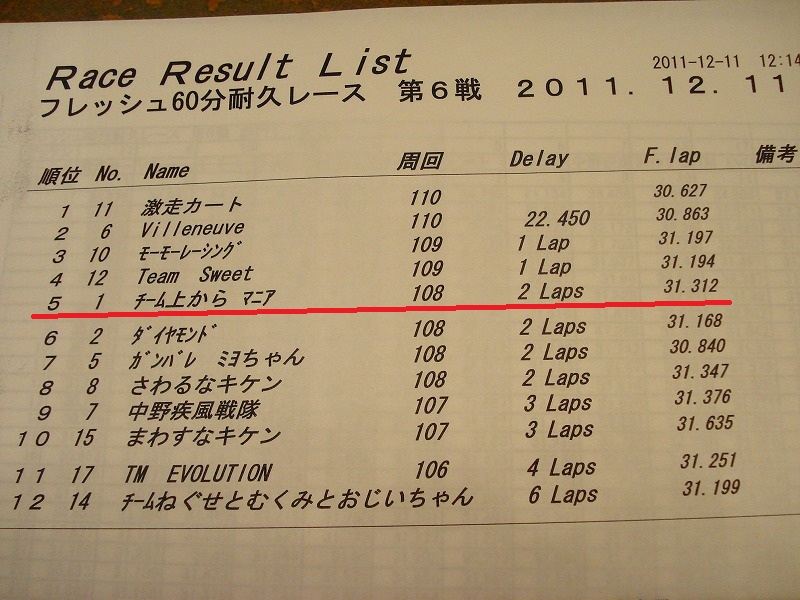 Race Result List
2011-12-11 12:14
フレッシュ60分耐久レース 第6戦 2011.12.11
順位 No. Name 周回 Delay F.lap 備考
1 11 激走カート 110 30.627
2 6 Villeneuve 110 22.450 30.863
3 10 ﾓｰﾓｰﾚｰｼﾝｸﾞ 109 1 Lap 31.197
4 12 Team Sweet 109 1 Lap 31.194
5 1 ﾁｰﾑ上から ﾏﾆｱ 108 2 Laps 31.312
6 2 ﾀﾞｲﾔﾓﾝﾄﾞ 108 2 Laps 31.168
7 5 ｶﾞﾝﾊﾞﾚ ﾐﾖちゃん 108 2 Laps 30.840
8 8 さわるなキケン 108 2 Laps 31.347
9 7 中野疾風戦隊 107 3 Laps 31.376
10 15 まわすなキケン 107 3 Laps 31.635
11 17 TM EVOLUTION 106 4 Laps 31.251
12 14 ﾁｰﾑねぐせとむくみとおじいちゃん 6 Laps 31.199